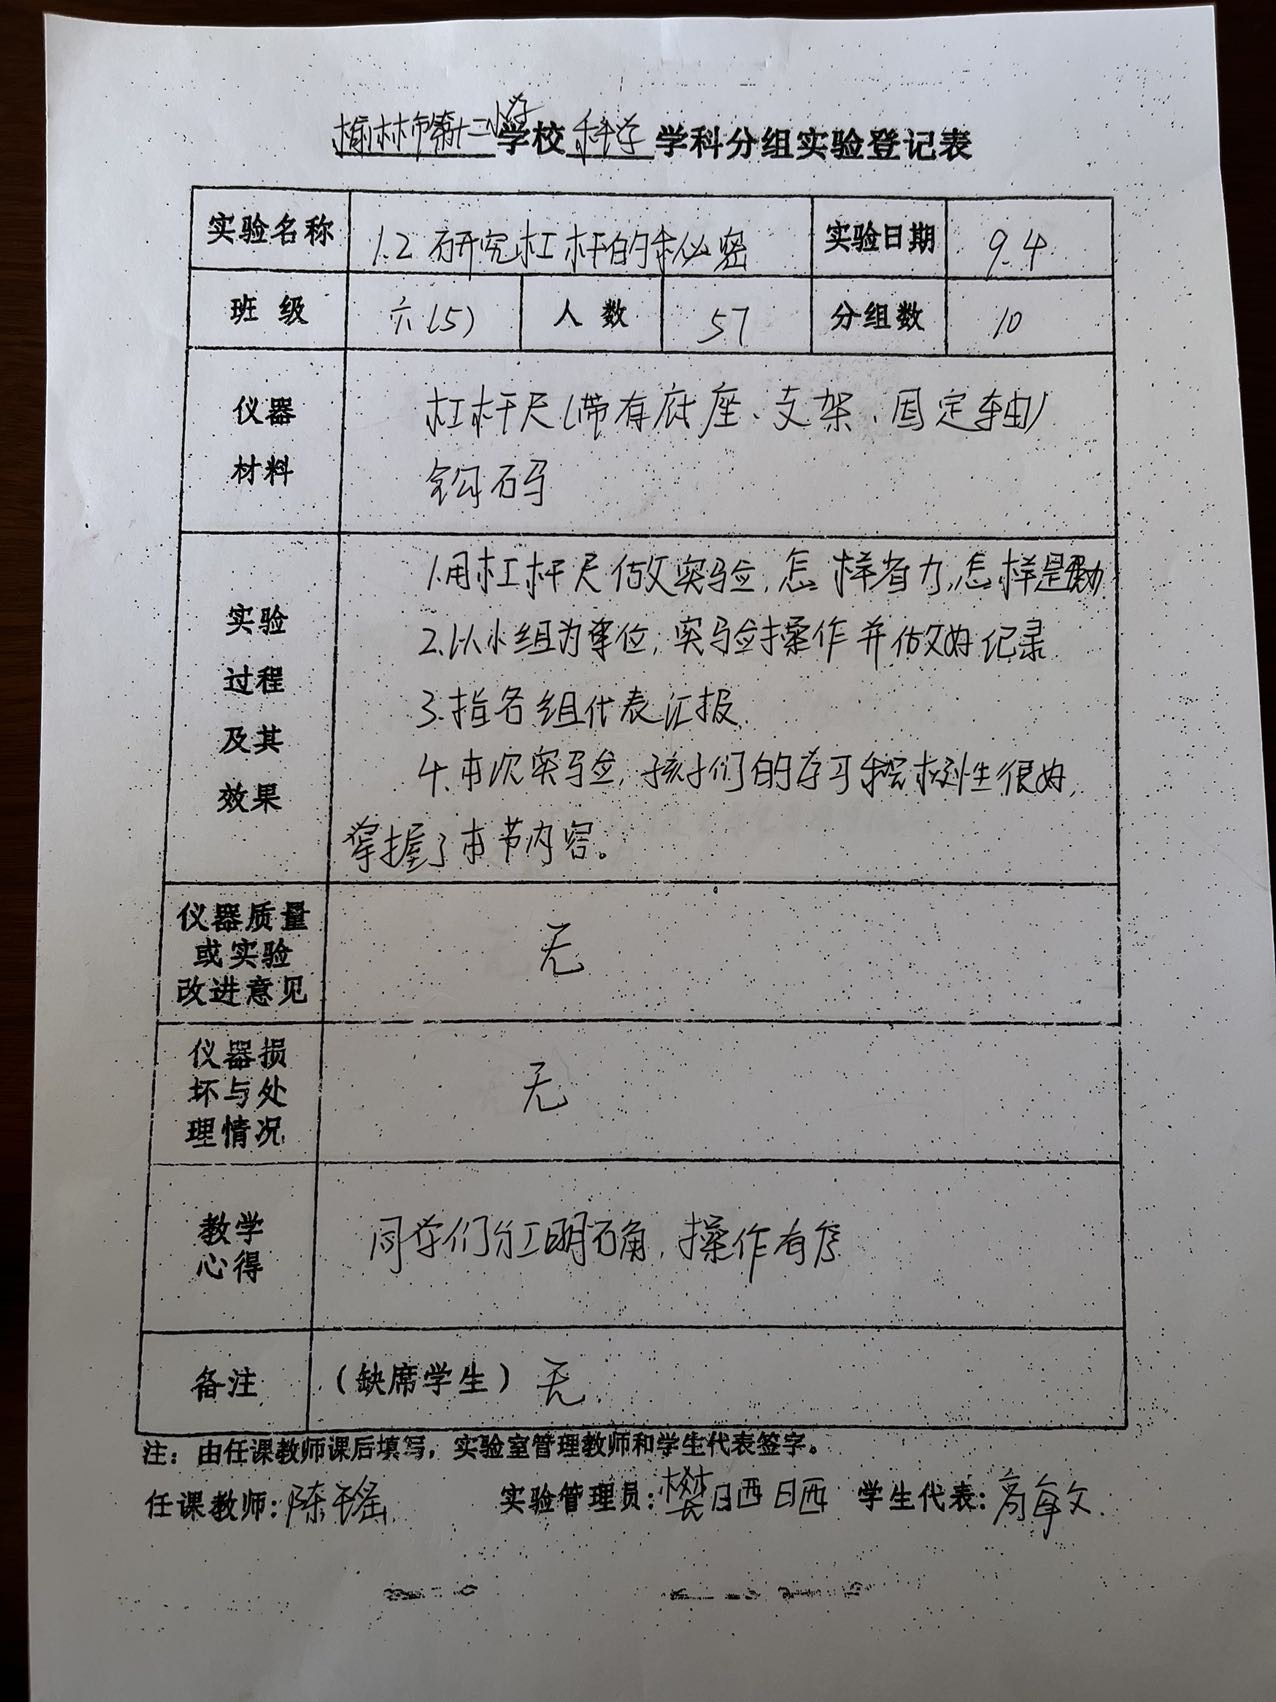 榆林市第十二小学学校科学学科分组实验登记表
实验名称 1.2 研究杠杆的秘密 实验日期 9.4
班级 六(5) 人数 57 分组数 10
仪器材料 杠杆尺(带有底座、支架、固定轴)
钩码
实验过程及其效果 1.用杠杆尺做实验,怎样省力,怎样是
2.以小组为单位,实验操作并做好记录
3.指名组代表汇报.
4.本次实验,孩子们的学习积极性很好,
掌握了本节内容。
仪器质量
或实验
改进意见 无
仪器损
坏与处
理情况 无
教学
心得 同学们分工明确,操作有序
备注 (缺席学生) 无
注:由任课教师课后填写,实验室管理教师和学生代表签字。
任课教师:陈瑶 实验管理员:樊晒晒 学生代表:高